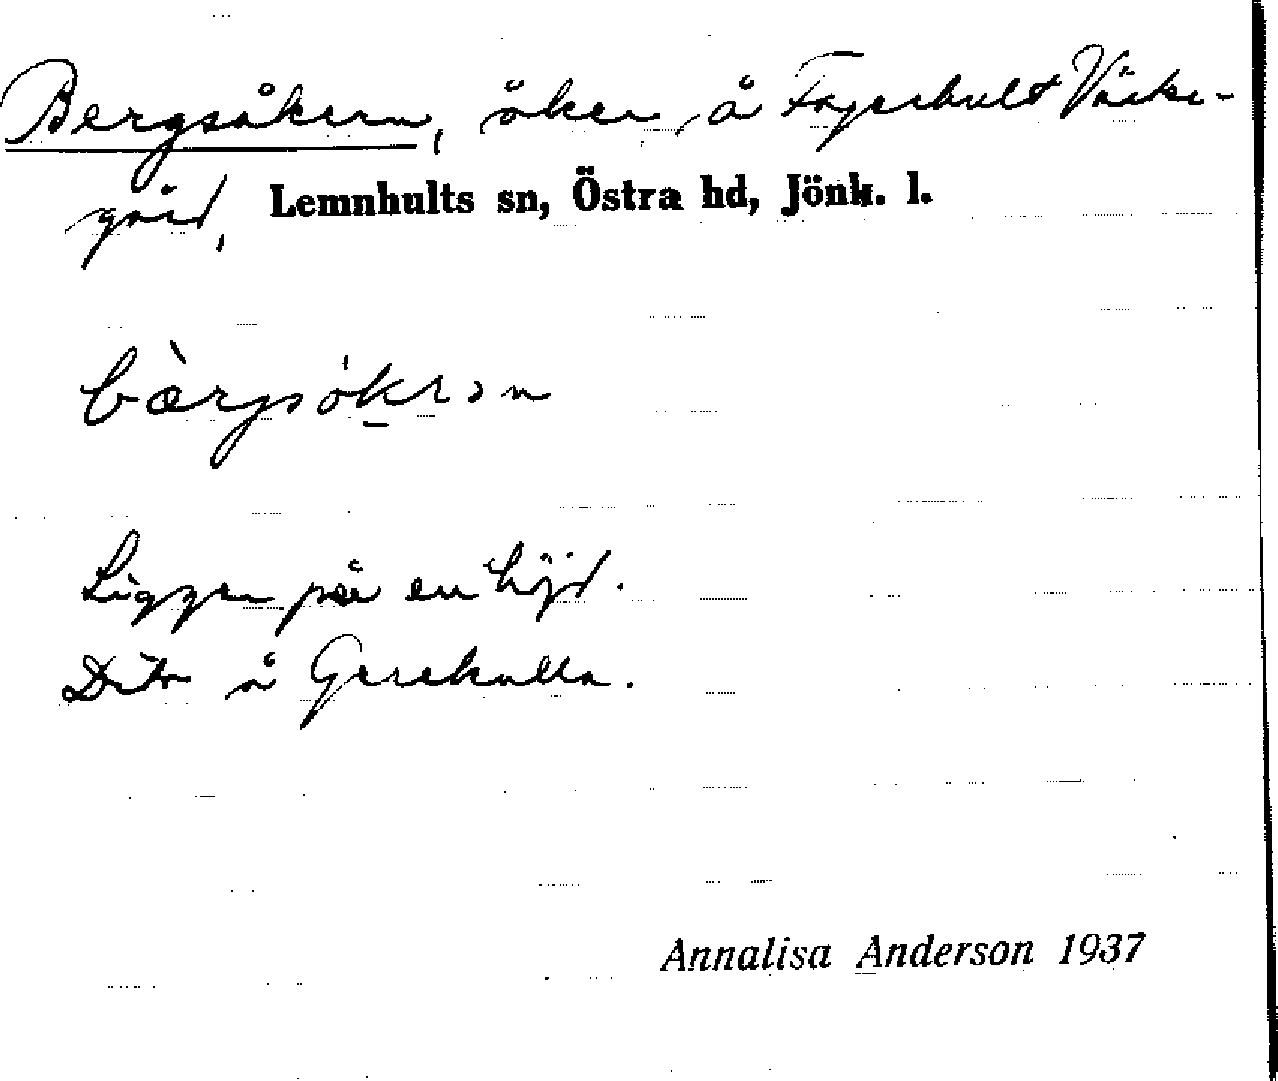 Bergsåkern, åker å Fagerhult Väster-
gård, Lemnhults sn, Östra hd, Jönk. l.
bàrgsókrən
Ligger på en höjd.
Dito å Gerekulla.
Annalisa Anderson 1937